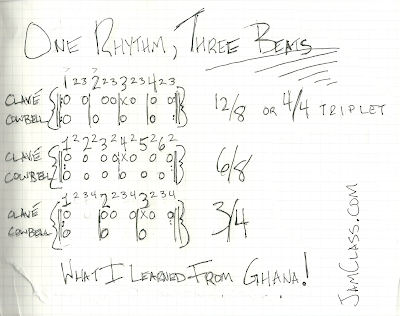 ONE RHYTHM, THREE BEATS
1 2 3 2 2 3 3 2 3 4 2 3
CLAVÉ
COWBELL
12/8 OR 4/4 TRIPLET
1 2 2 2 3 2 4 2 5 2 6 2
CLAVÉ
COWBELL
6/8
1 2 3 4 2 2 3 4 3 2 3 4
CLAVÉ
COWBELL
3/4
WHAT I LEARNED FROM GHANA!
JAMCLASS.COM